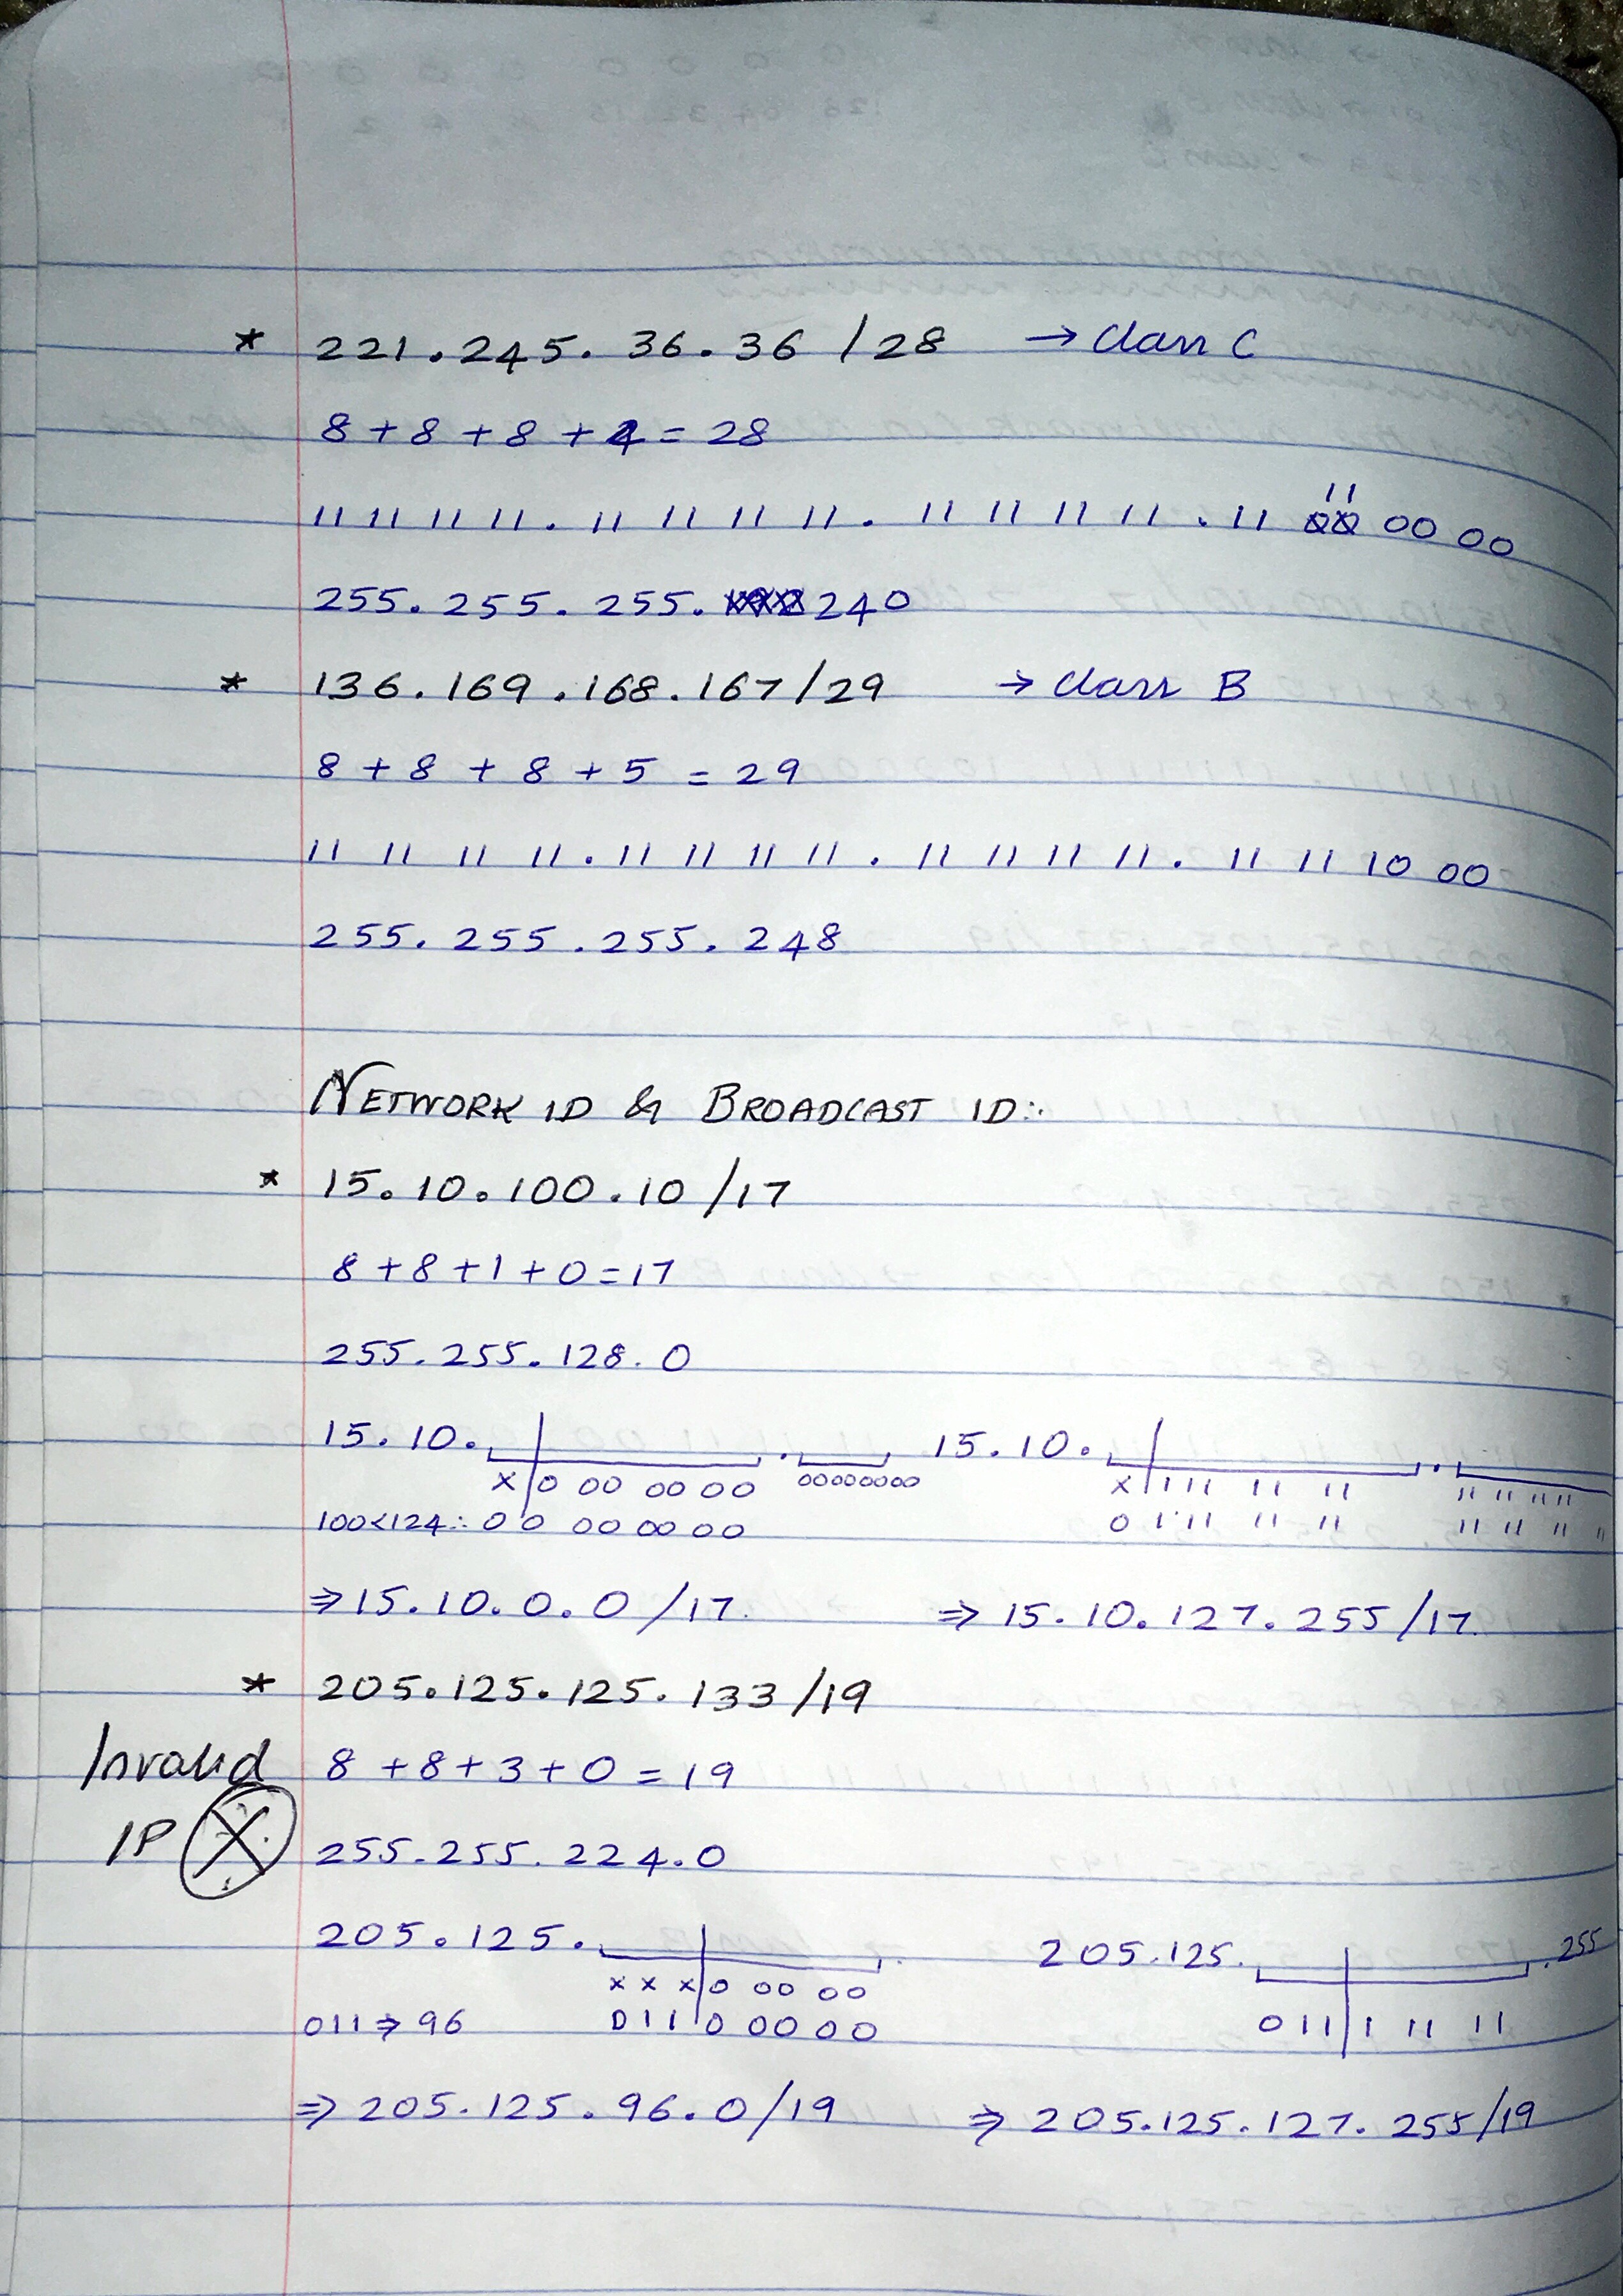 * 221.245.36.36 /28 → Class C
8 + 8 + 8 + 4 = 28
11 11 11 11 . 11 11 11 11 . 11 11 11 11 . 11 11 00 00
255. 255. 255. 240
* 136.169.168.167/29 → Class B
8 + 8 + 8 + 5 = 29
11 11 11 11 . 11 11 11 11 . 11 11 11 11 . 11 11 10 00
255. 255. 255. 248
NETWORK ID & BROADCAST ID:.
* 15.10.100.10 /17
8 + 8 + 1 + 0 = 17
255.255.128.0
15.10. . 15.10. .
X 0 00 00 00 00000000 X 111 11 11 11 11 11 11
100<124 ∴ 00 00 00 00 0 1 11 11 11 11 11 11 11
⇒ 15.10.0.0 /17. ⇒ 15.10.127.255/17.
* 205.125.125.133 /19
Invalid 8 + 8 + 3 + 0 = 19
IP X 255.255.224.0
205.125. . 205.125. .255
X X X 0 00 00
011 ⇒ 96 011 0 00 00 011 1 11 11
⇒ 205.125.96.0/19 ⇒ 205.125.127.255/19